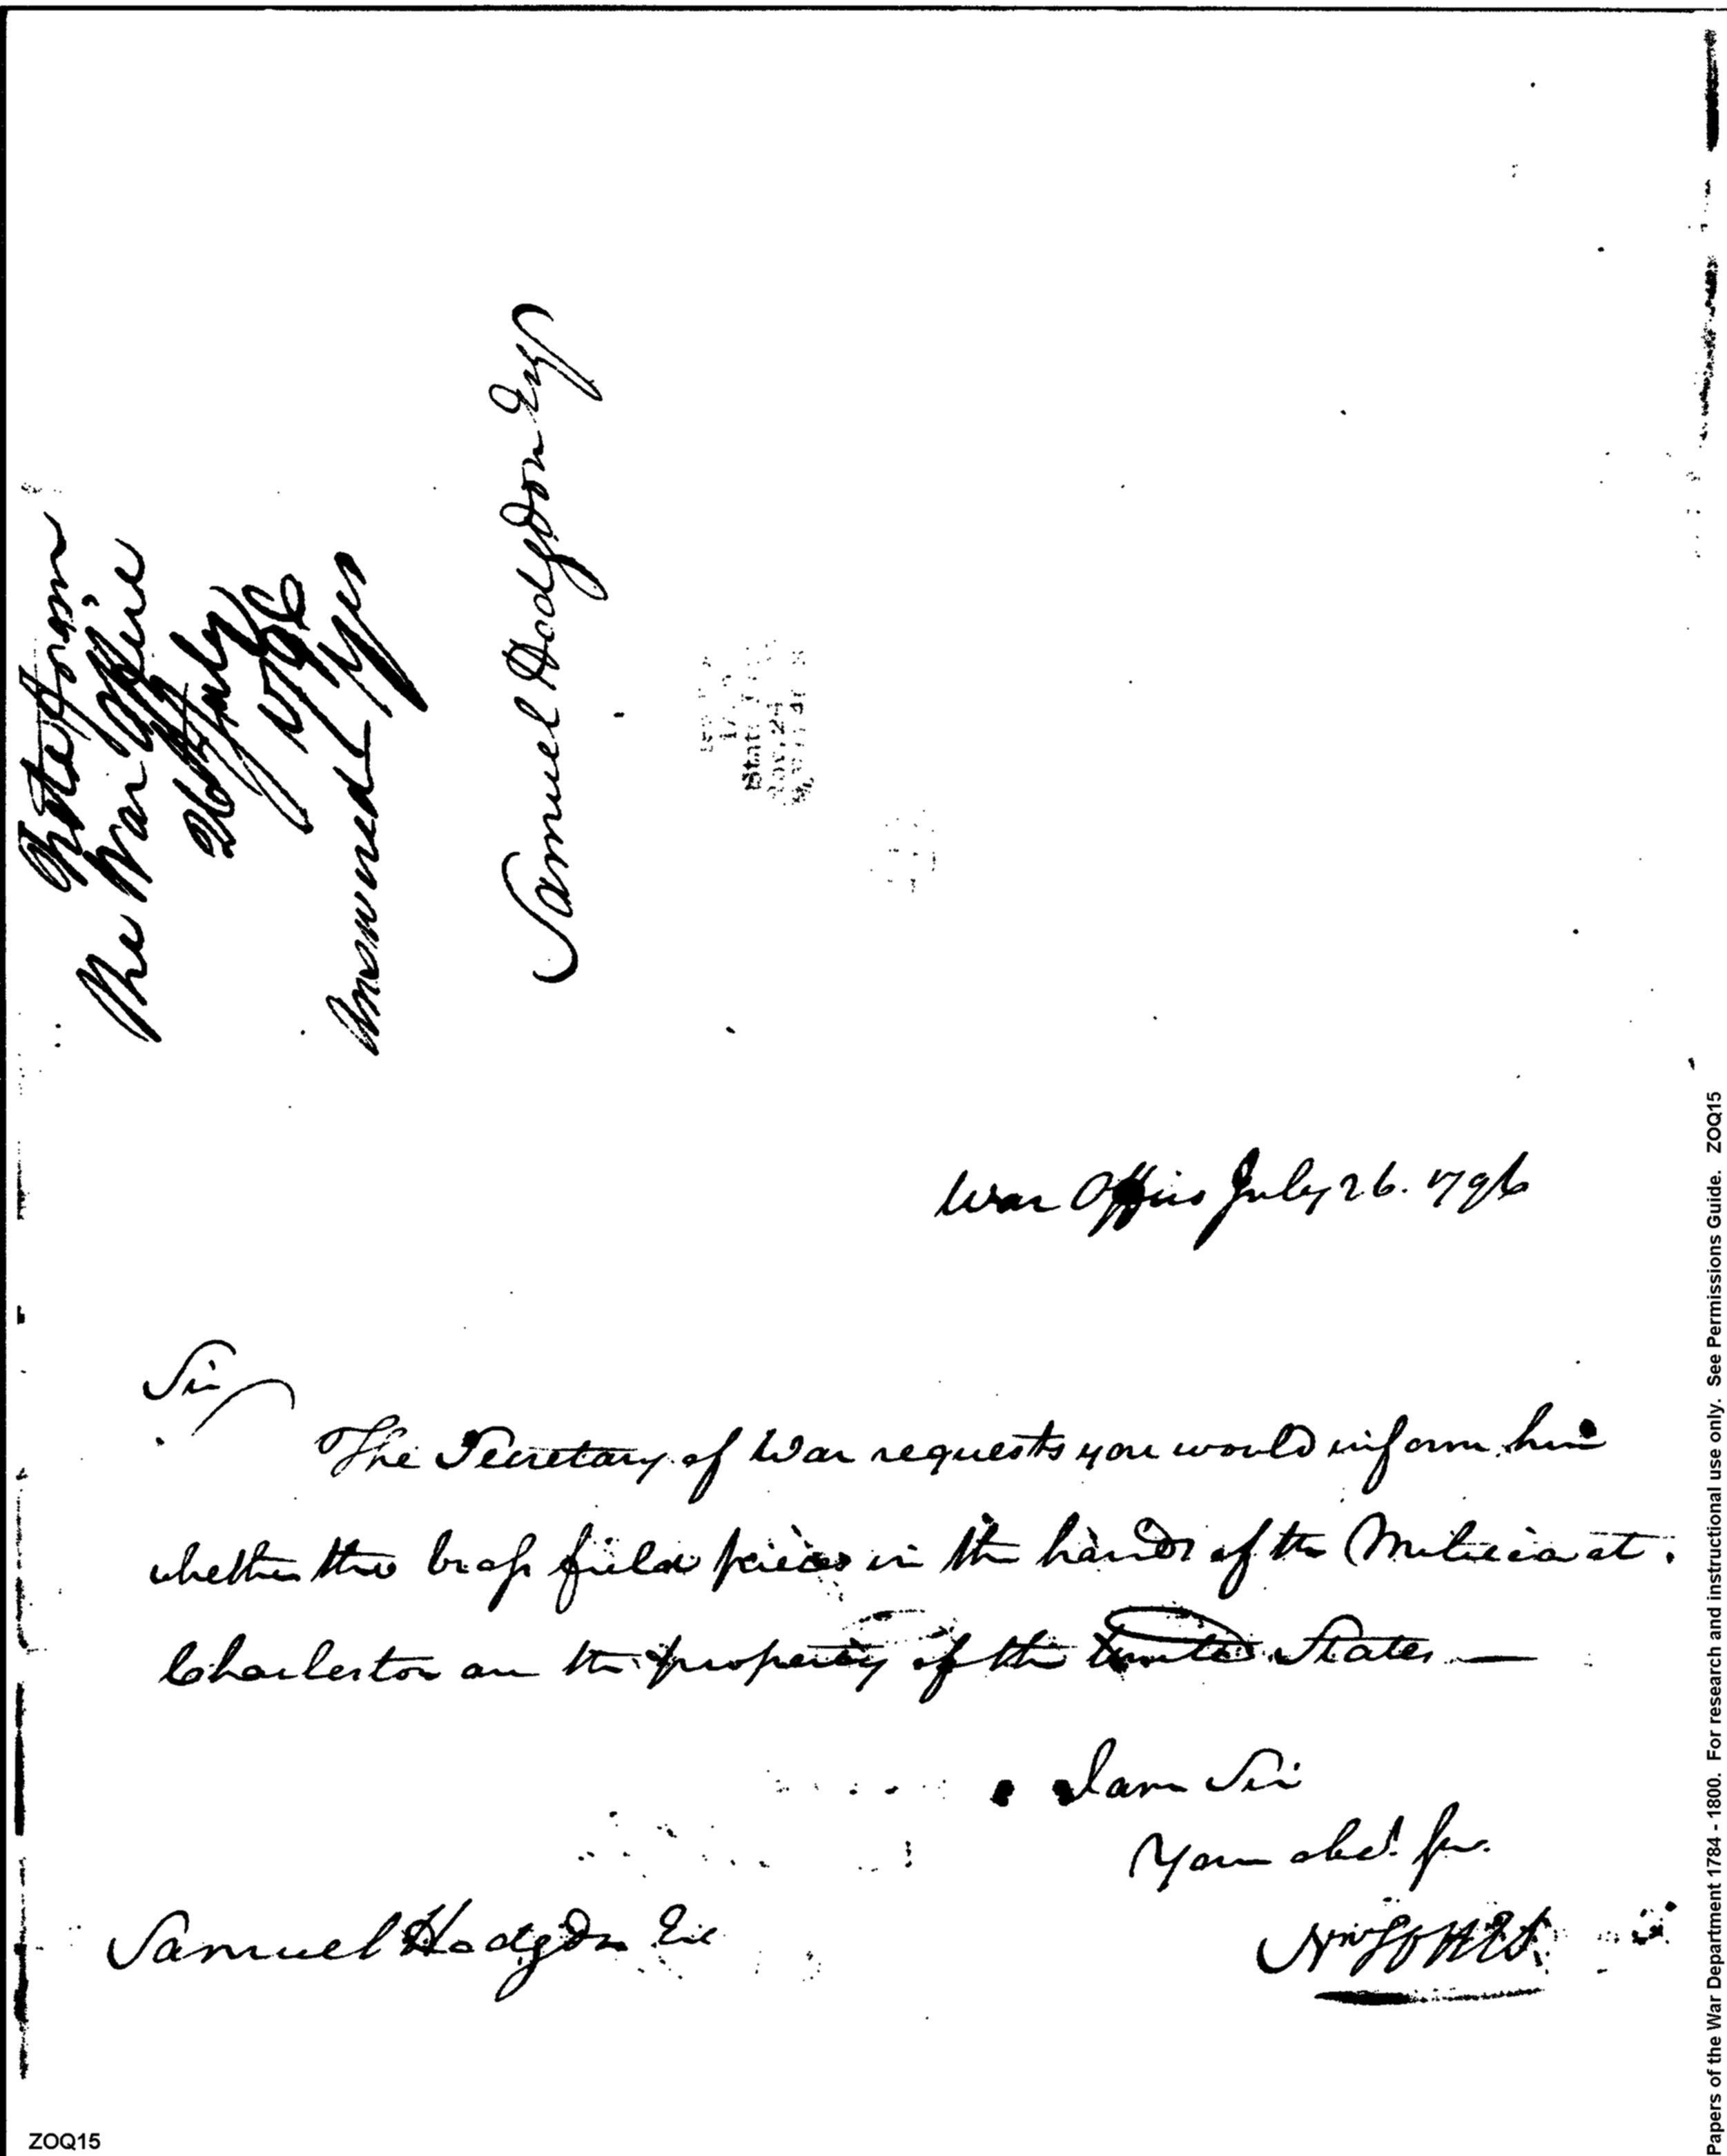 Note from
the War Office
26 July
1796
Answered
Samuel Hodgdon Esq
War Office July 26. 1796
Sir
The Secretary of War requests you would inform him
whether the brass field pieces in the hands of the Militia at
Charleston are the property of the United States —
I am Sir
Your obed. ser.
Samuel Hodgdon Esq
ZOQ15
Papers of the War Department 1784 - 1800. For research and instructional use only. See Permissions Guide. ZOQ15